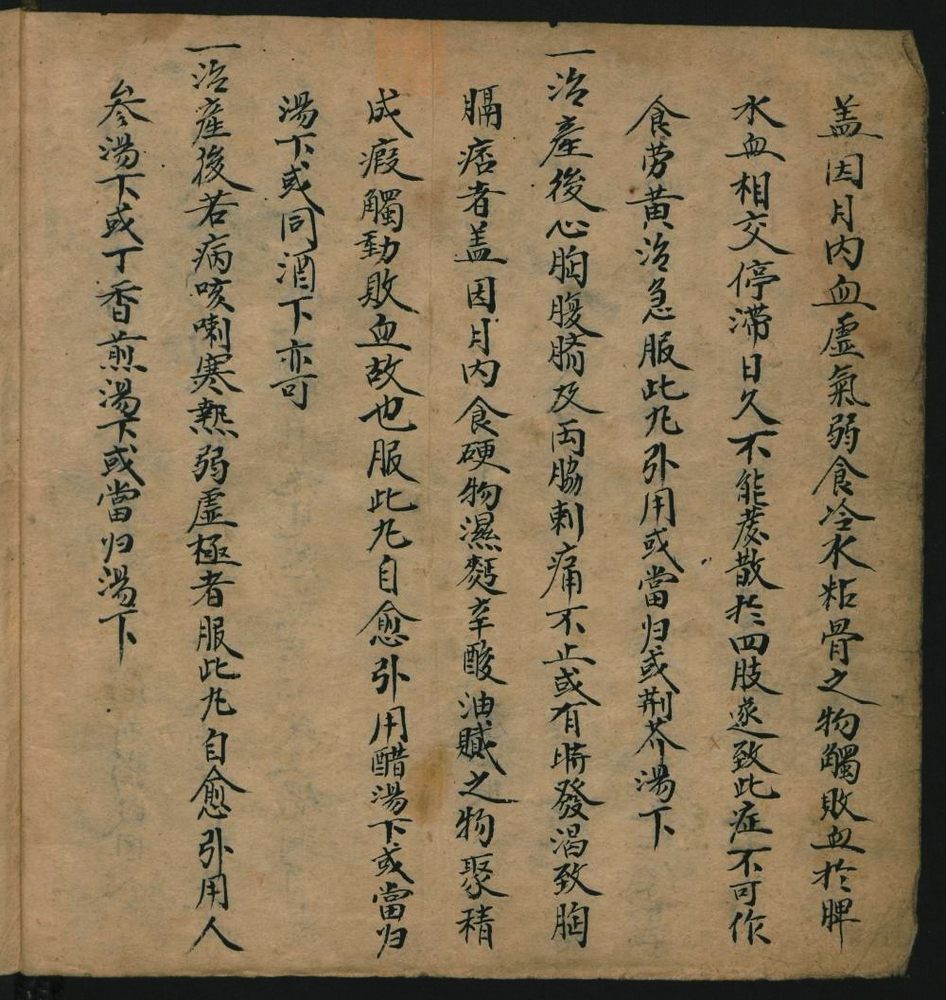 盖因月内血虛氣弱食冷水粘骨之物觸敗血於脾
水血相交停滯日久不能發散於四肢遂致此症不可作
食劳黄治急服此丸引用或當归或荆芥湯下
一治產後心胸腹脐及両脇刺痛不止或有時發渴致胸
膈痞者盖因月内食硬物濕麪辛酸油膩之物聚積
成瘕觸動敗血故也服此丸自愈引用醋湯下或當归
湯下或同酒下亦可
一治產後若病咳喇寒熱弱虛極者服此丸自愈引用人
参湯下或丁香煎湯下或當归湯下